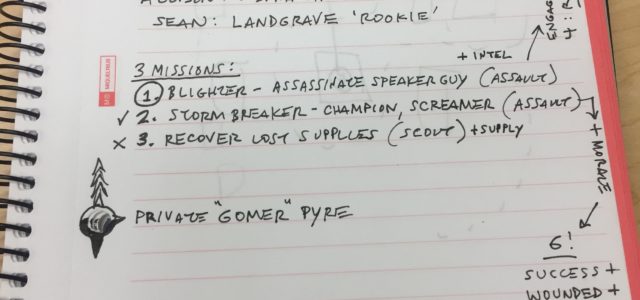 SEAN: LANDGRAVE 'ROOKIE'
3 MISSIONS:
+ INTEL
1. BLIGHTER - ASSASSINATE SPEAKER GUY (ASSAULT)
✓ 2. STORM BREAKER - CHAMPION, SCREAMER (ASSAULT)
X 3. RECOVER LOST SUPPLIES (SCOUT) + SUPPLY
+ MORALE
PRIVATE "GOMER" PYRE
6!
SUCCESS +
WOUNDED +